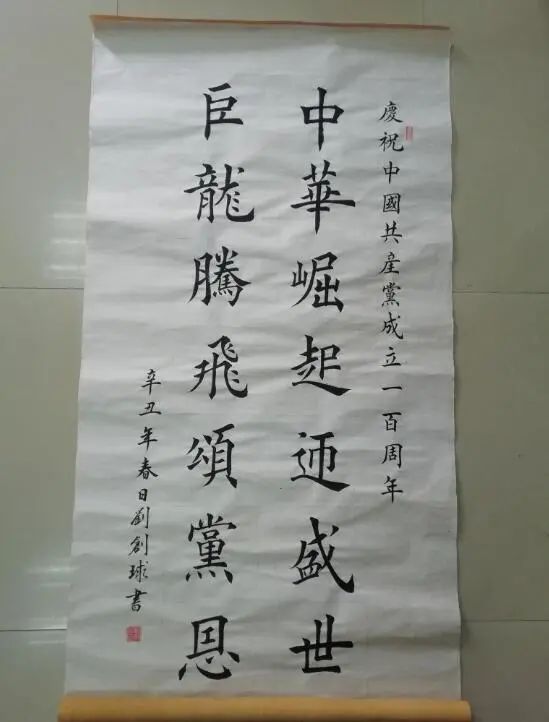 慶祝中國共產黨成立一百周年
中華崛起迊盛世
巨龍騰飛頌黨恩
辛丑年春日劉創球書